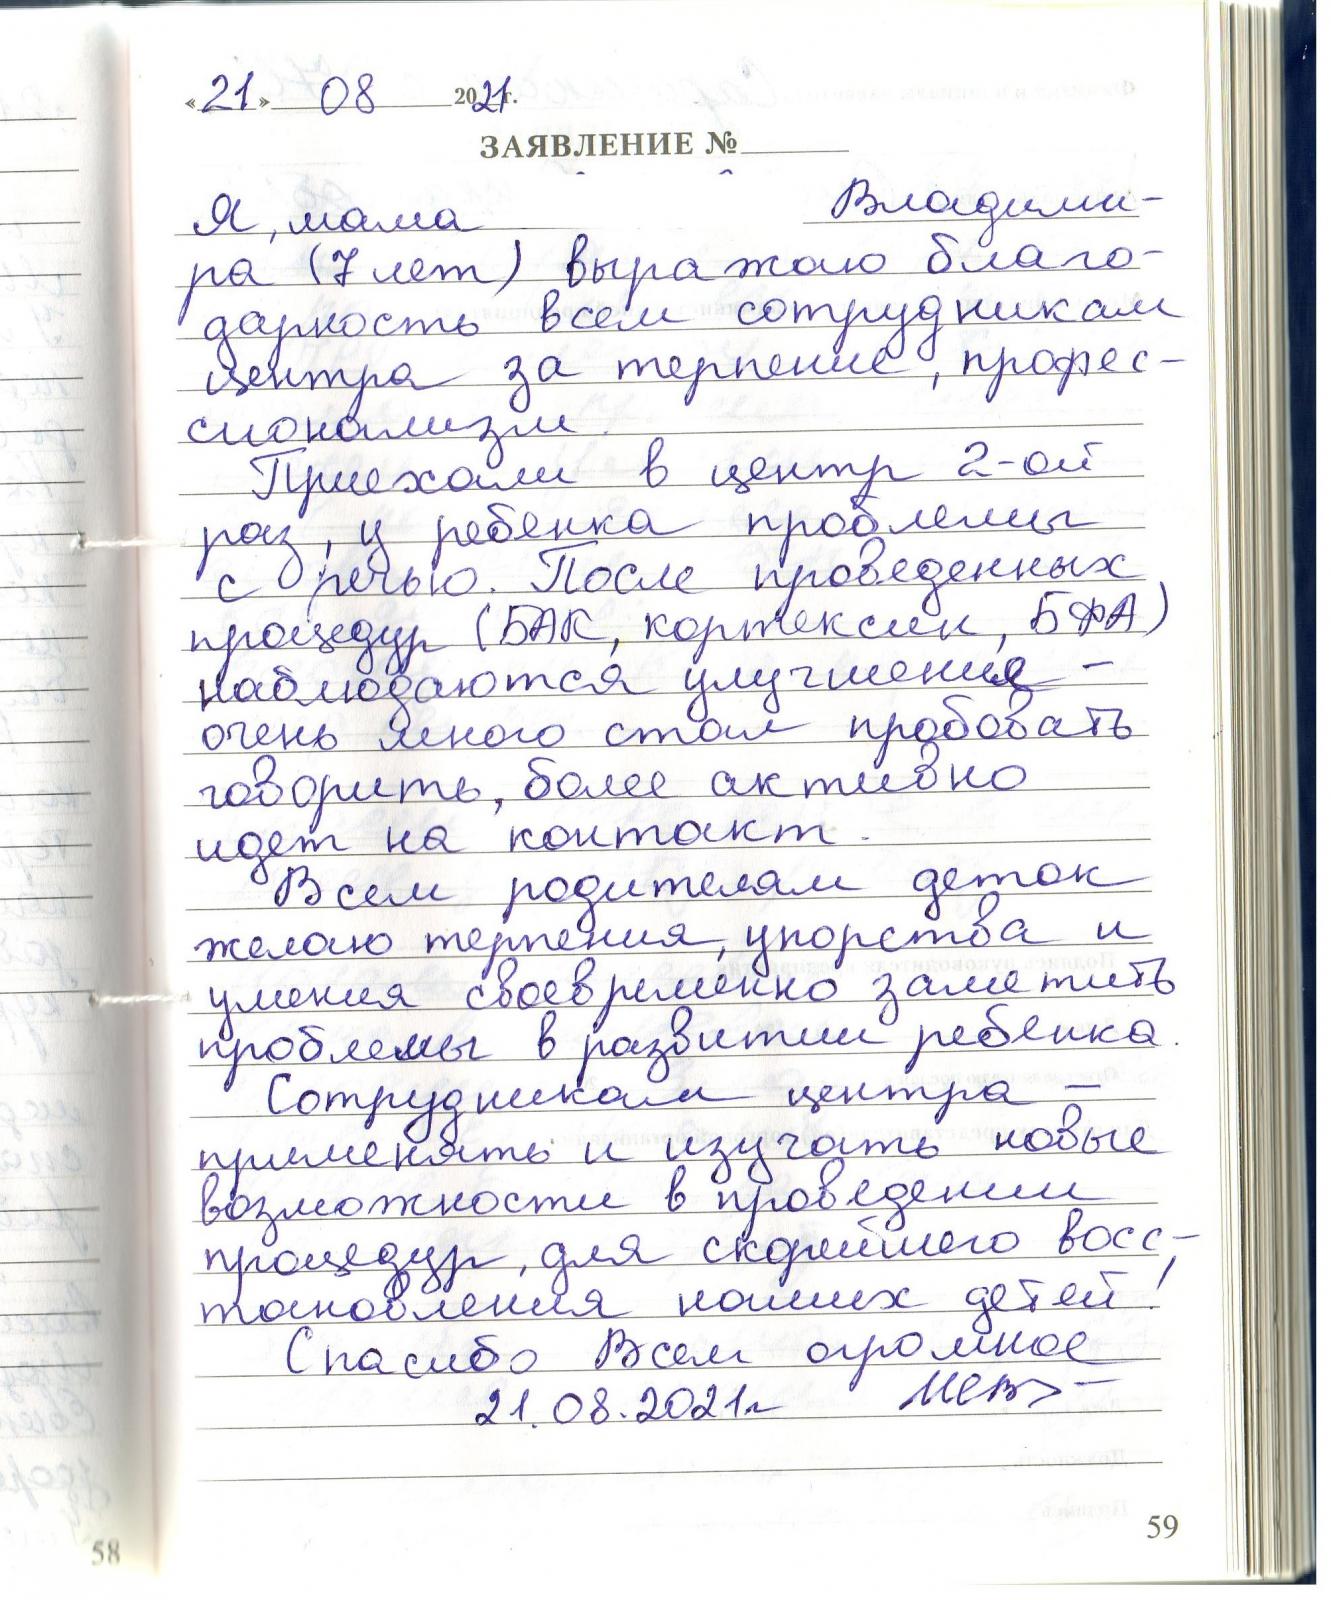 «21» 08 2021 г.
ЗАЯВЛЕНИЕ №
Я, мама Владими-
ра (7 лет) выражаю благо-
дарность всем сотрудникам
центра за терпение, профес-
сионализм.
Приехали в центр 2-ой
раз, у ребенка проблемы
с речью. После проведенных
процедур (БАК, кортексин, БФА)
наблюдаются улучшения –
очень много стал пробовать
говорить, более активно
идет на контакт.
Всем родителям деток
желаю терпения, упорства и
умения своевременно заметить
проблемы в развитии ребенка.
Сотрудникам центра –
применять и изучать новые
возможности в проведении
процедур, для скорейшего восс-
тановления наших детей!
Спасибо Всем огромное
21.08.2021г
58
59